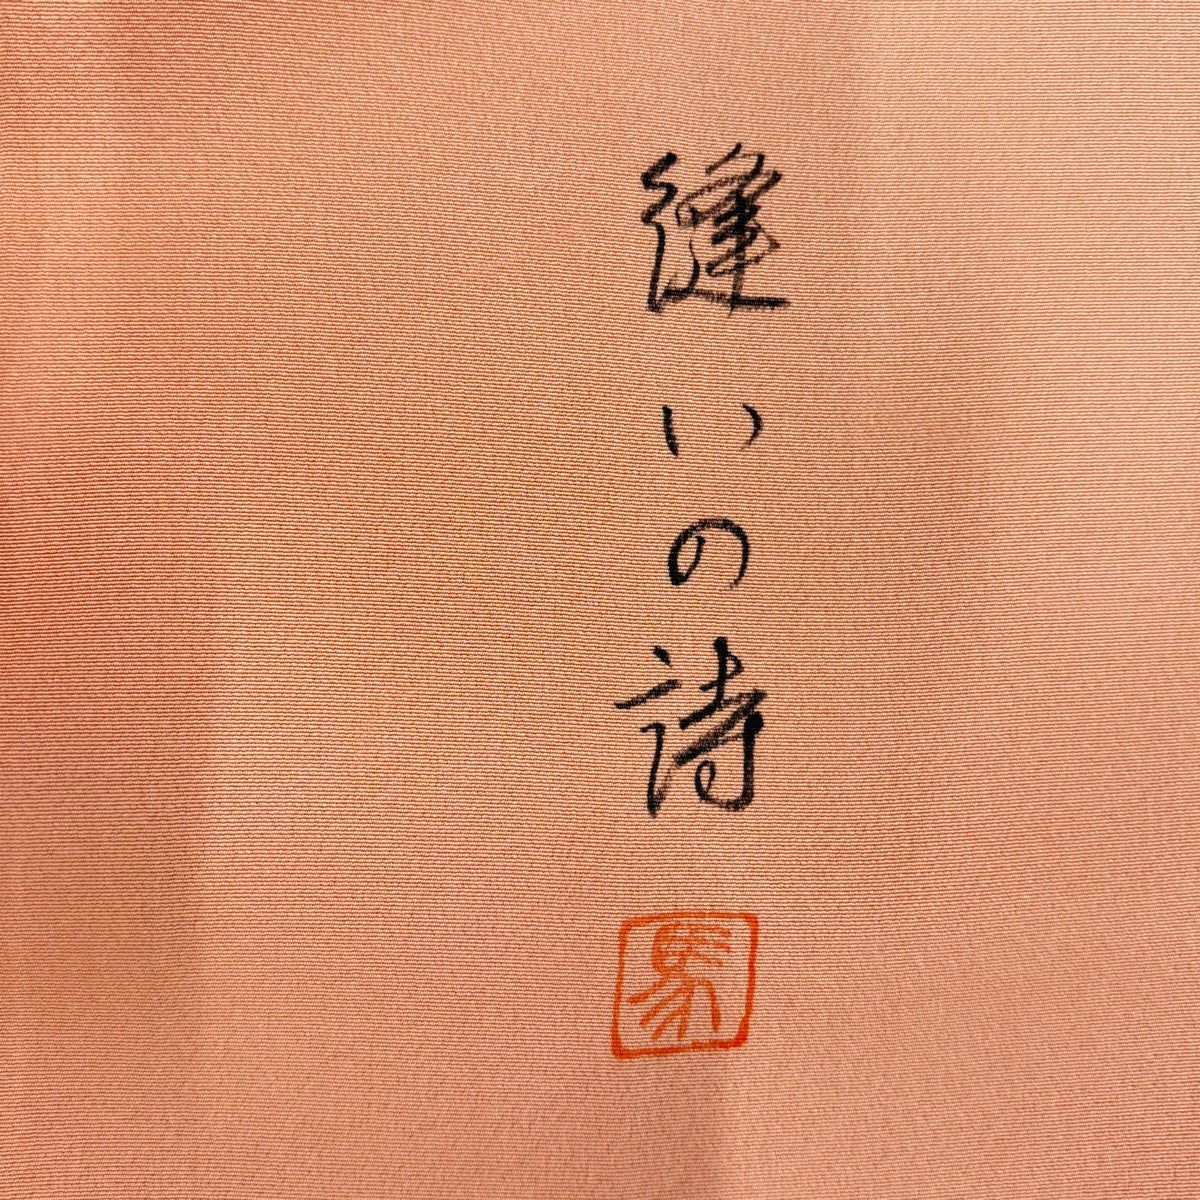 縫いの詩